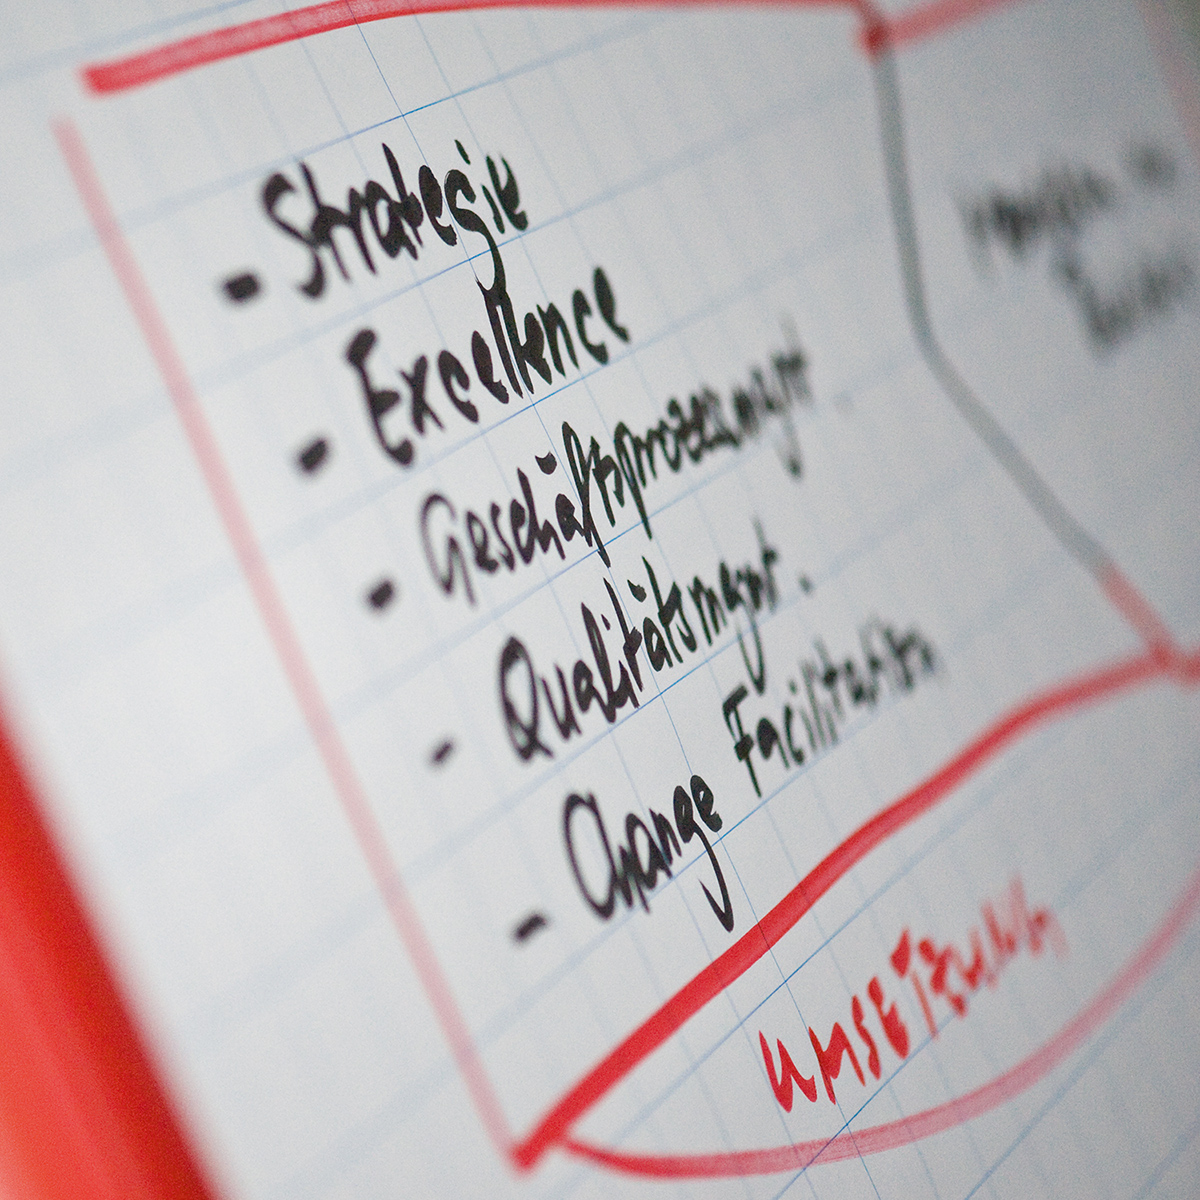 - Strategie
- Excellence
- Geschäftsprozessmgmt
- Qualitätsmgmt.
- Change Facilitation
UMSETZUNG